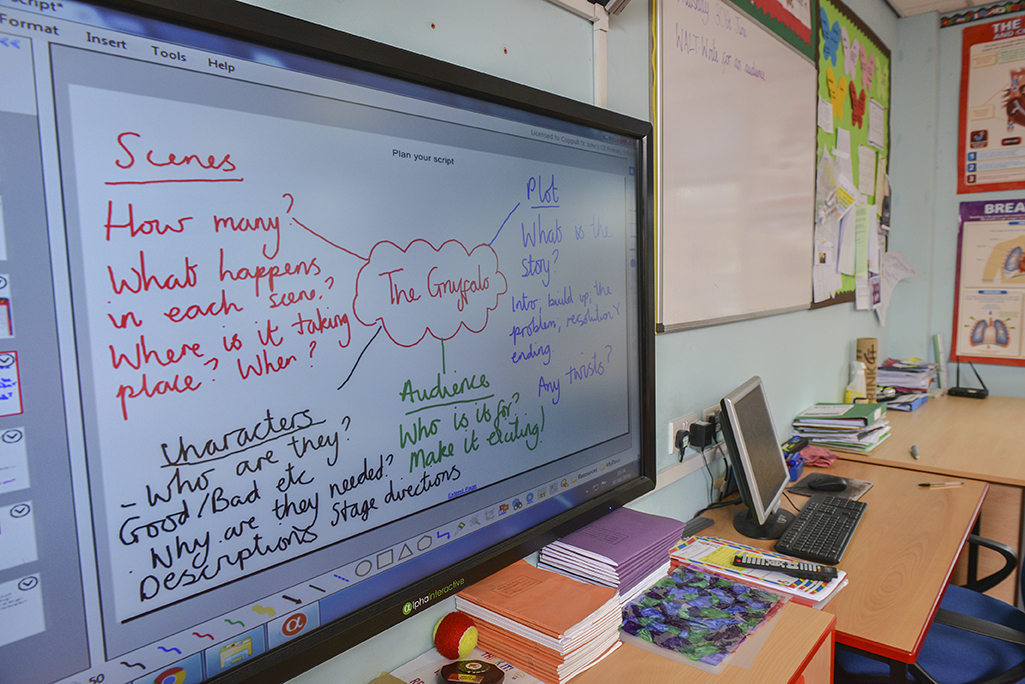 Script*
Format Insert Tools Help
Plan your script
Scenes
How many?
What happens
in each scene?
Where is it taking
place? When?
The Gruffalo
Plot
Whats is the
story?
Intro, build up, the
problem, resolution &
ending.
Any twists?
Characters
- Who are they?
Good/Bad etc
. Why are they needed?
Descriptions Stage directions
Audience
Who is it for?
Make it exciting!
Extend Page
50
alphainteractive
WALT Write for an audience
THE
BREA